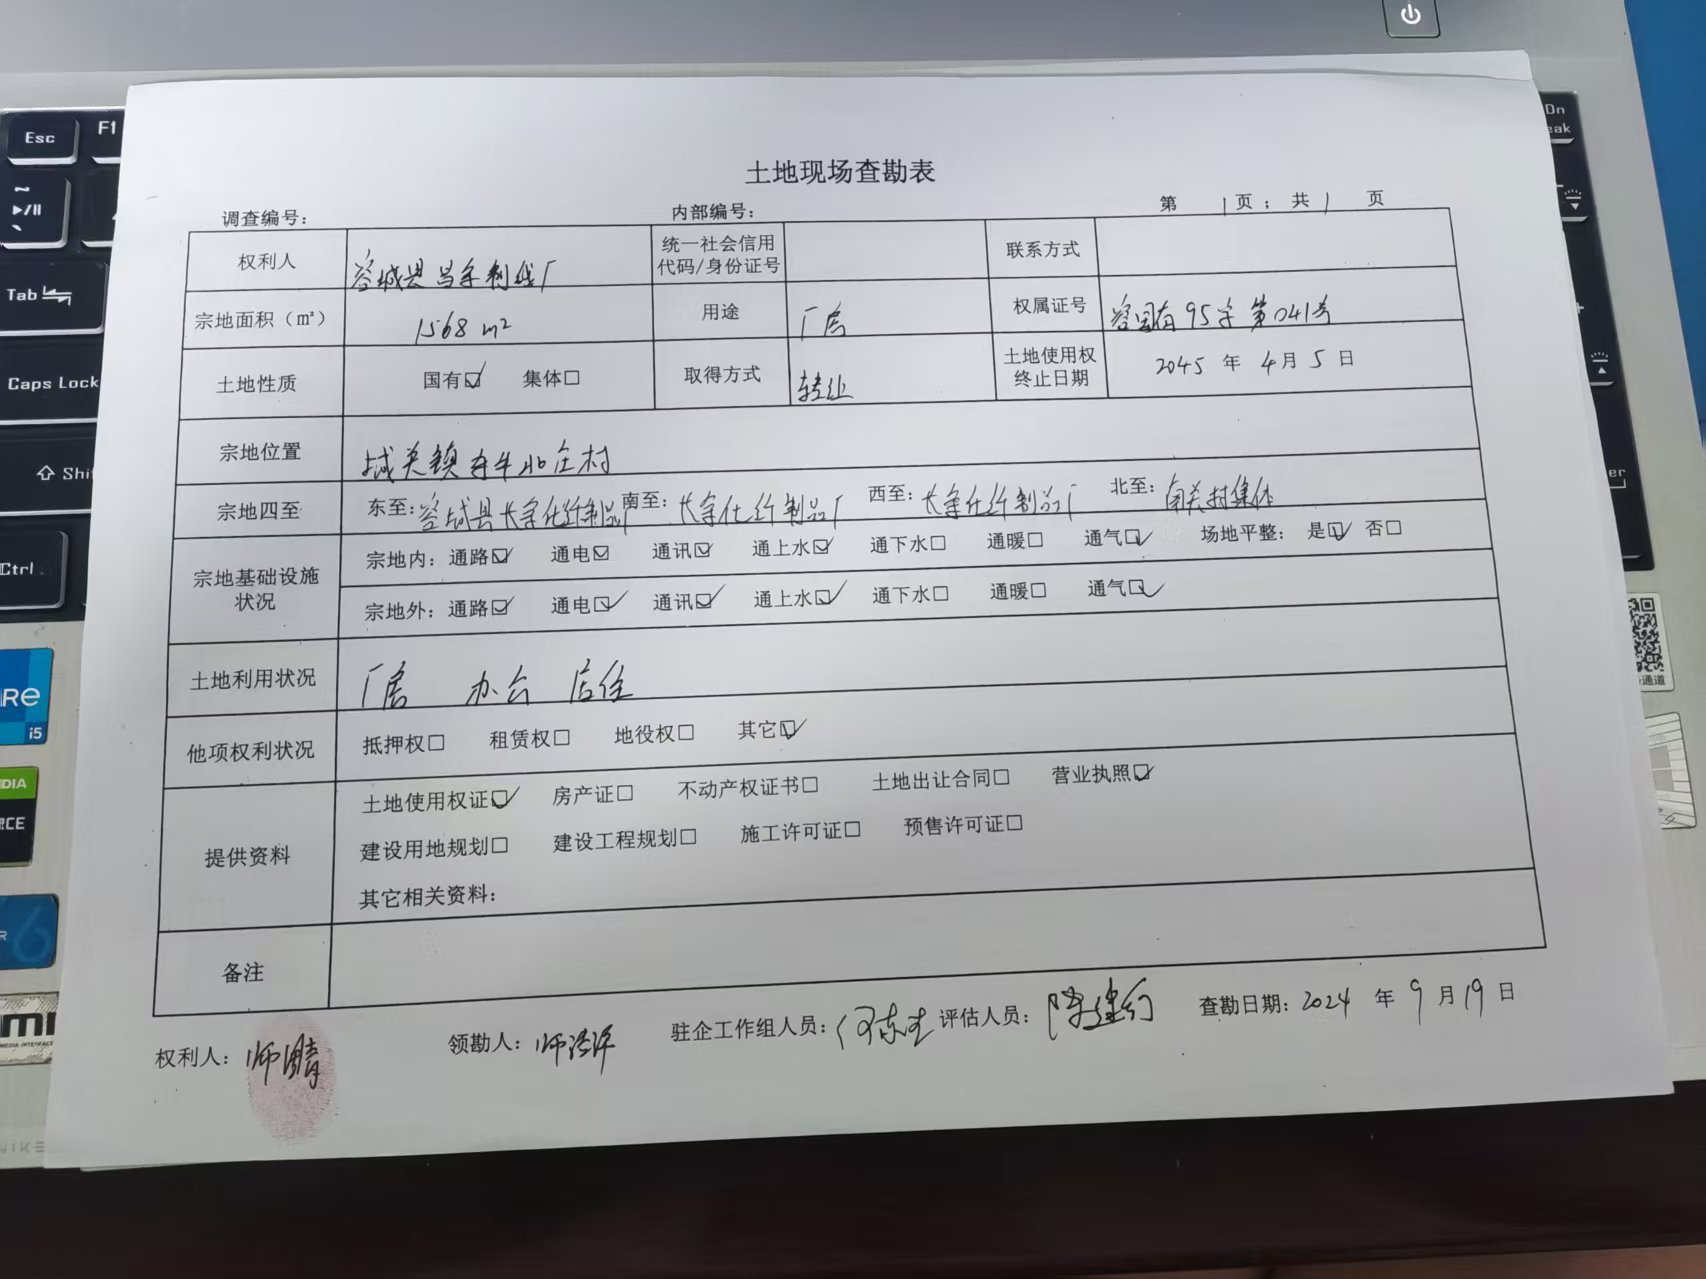 土地现场查勘表
调查编号： 内部编号： 第 1 页； 共 1 页
权利人 容城县昌宇制线厂 统一社会信用代码/身份证号 联系方式
宗地面积（㎡） 1568 m² 用途 厂房 权属证号 容国有95字第041号
土地性质 国有☑ 集体□ 取得方式 转让 土地使用权终止日期 2045 年 4月 5 日
宗地位置 城关镇 北庄村
宗地四至 东至：容城县长宇化纤制品厂 南至：长宇化纤制品厂 西至：长宇化纤制品厂 北至：南关村集体
宗地基础设施状况 宗地内：通路☑ 通电☑ 通讯☑ 通上水☑ 通下水□ 通暖□ 通气☑ 场地平整： 是☑ 否□
宗地外：通路☑ 通电☑ 通讯☑ 通上水☑ 通下水□ 通暖□ 通气☑
土地利用状况 厂房 办公 居住
他项权利状况 抵押权□ 租赁权□ 地役权□ 其它☑
提供资料 土地使用权证☑ 房产证□ 不动产权证书□ 土地出让合同□ 营业执照☑
建设用地规划□ 建设工程规划□ 施工许可证□ 预售许可证□
其它相关资料：
备注
权利人： 师 领勘人： 师 驻企工作组人员： 评估人员： 陈建 查勘日期：2024 年 9 月 19 日
Esc
F1
Tab
Caps Lock
Shi
Ctrl
i5